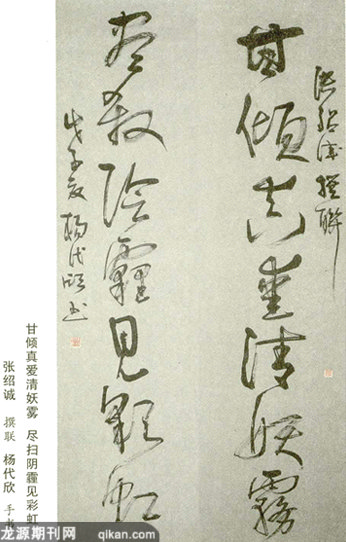 張紹誠撰聯
甘傾真愛清妖霧
尽扫陰霾見彩虹
戊子夏楊代欣书
甘倾真爱清妖雾 尽扫阴霾见彩虹
张绍诚 撰联 杨代欣 手书
龙源期刊网 qikan.com